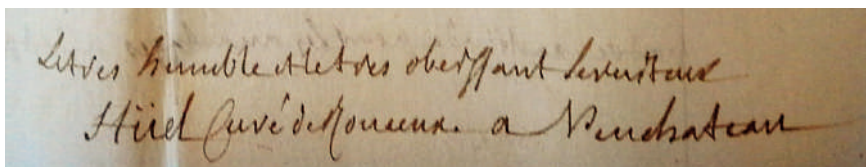 Le tres humble et le tres obeissant serviteur
Hüel Curé de Rouceux. a Neuchateau